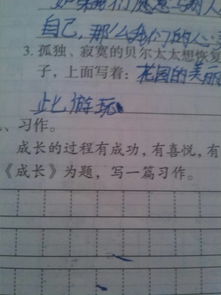 自己,那么我们的人
3. 孤独、寂寞的贝尔太太想恢复
子,上面写着: 花园的美丽
此游玩。
、习作。
成长的过程有成功,有喜悦,有
《成长》为题,写一篇习作。